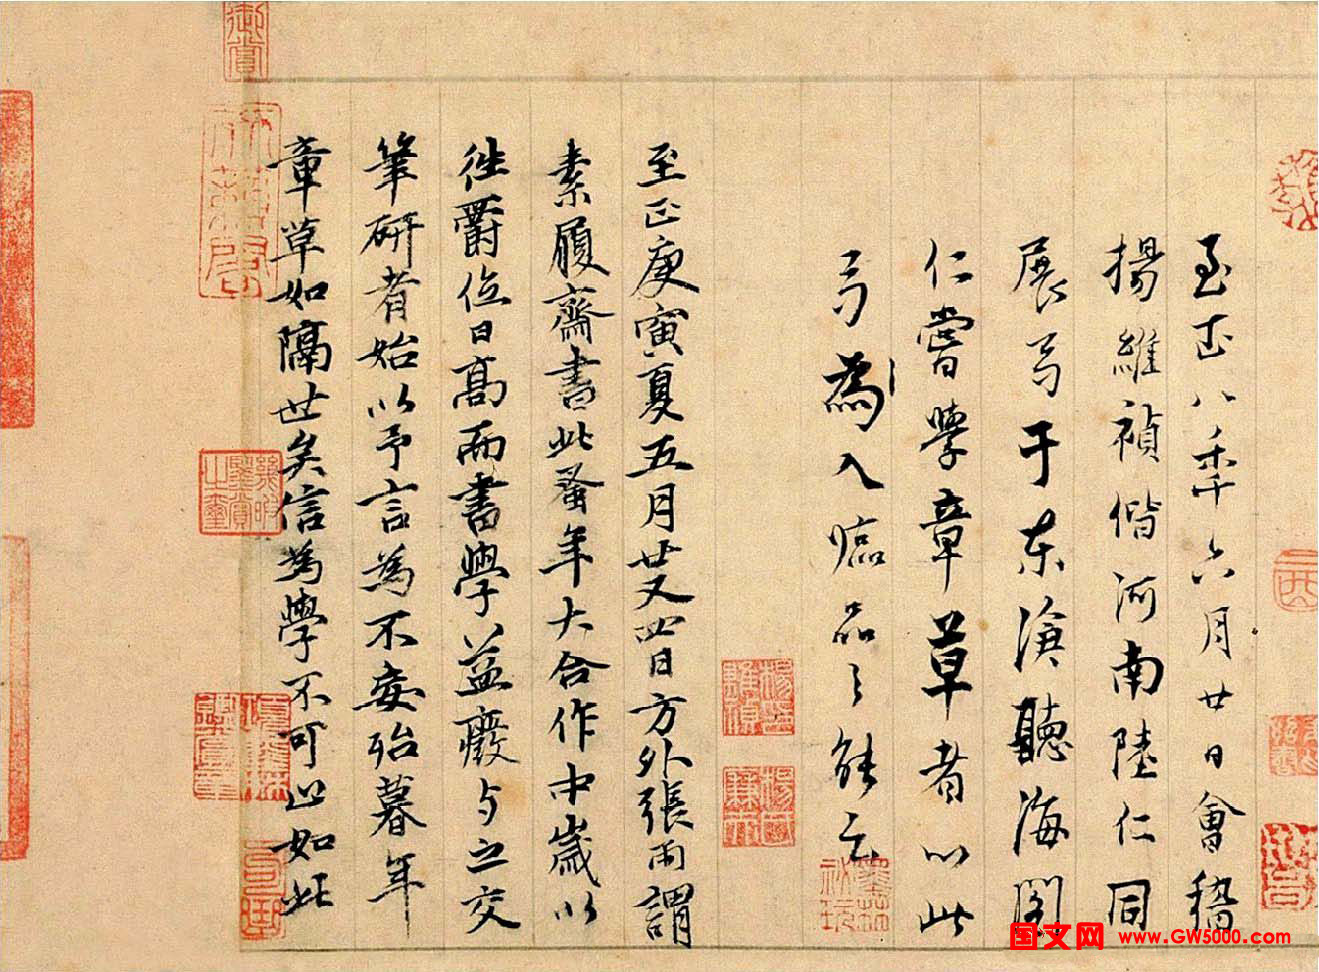 至正八年六月廿日會稽
揚維禎偕河南陸仁同
展弓于東滄聽海閣
仁嘗學章草者以此
弓為入臨品之能云
至正庚寅夏五月廿又四日方外張雨謂
素履齋書此蚤年大合作中歲以
往爵位日髙而書學益廢与之交
筆研者始以予言為不妄殆暮年
章草如隔世矣信為學不可止如此
御賞
国文网 www.GW5000.com